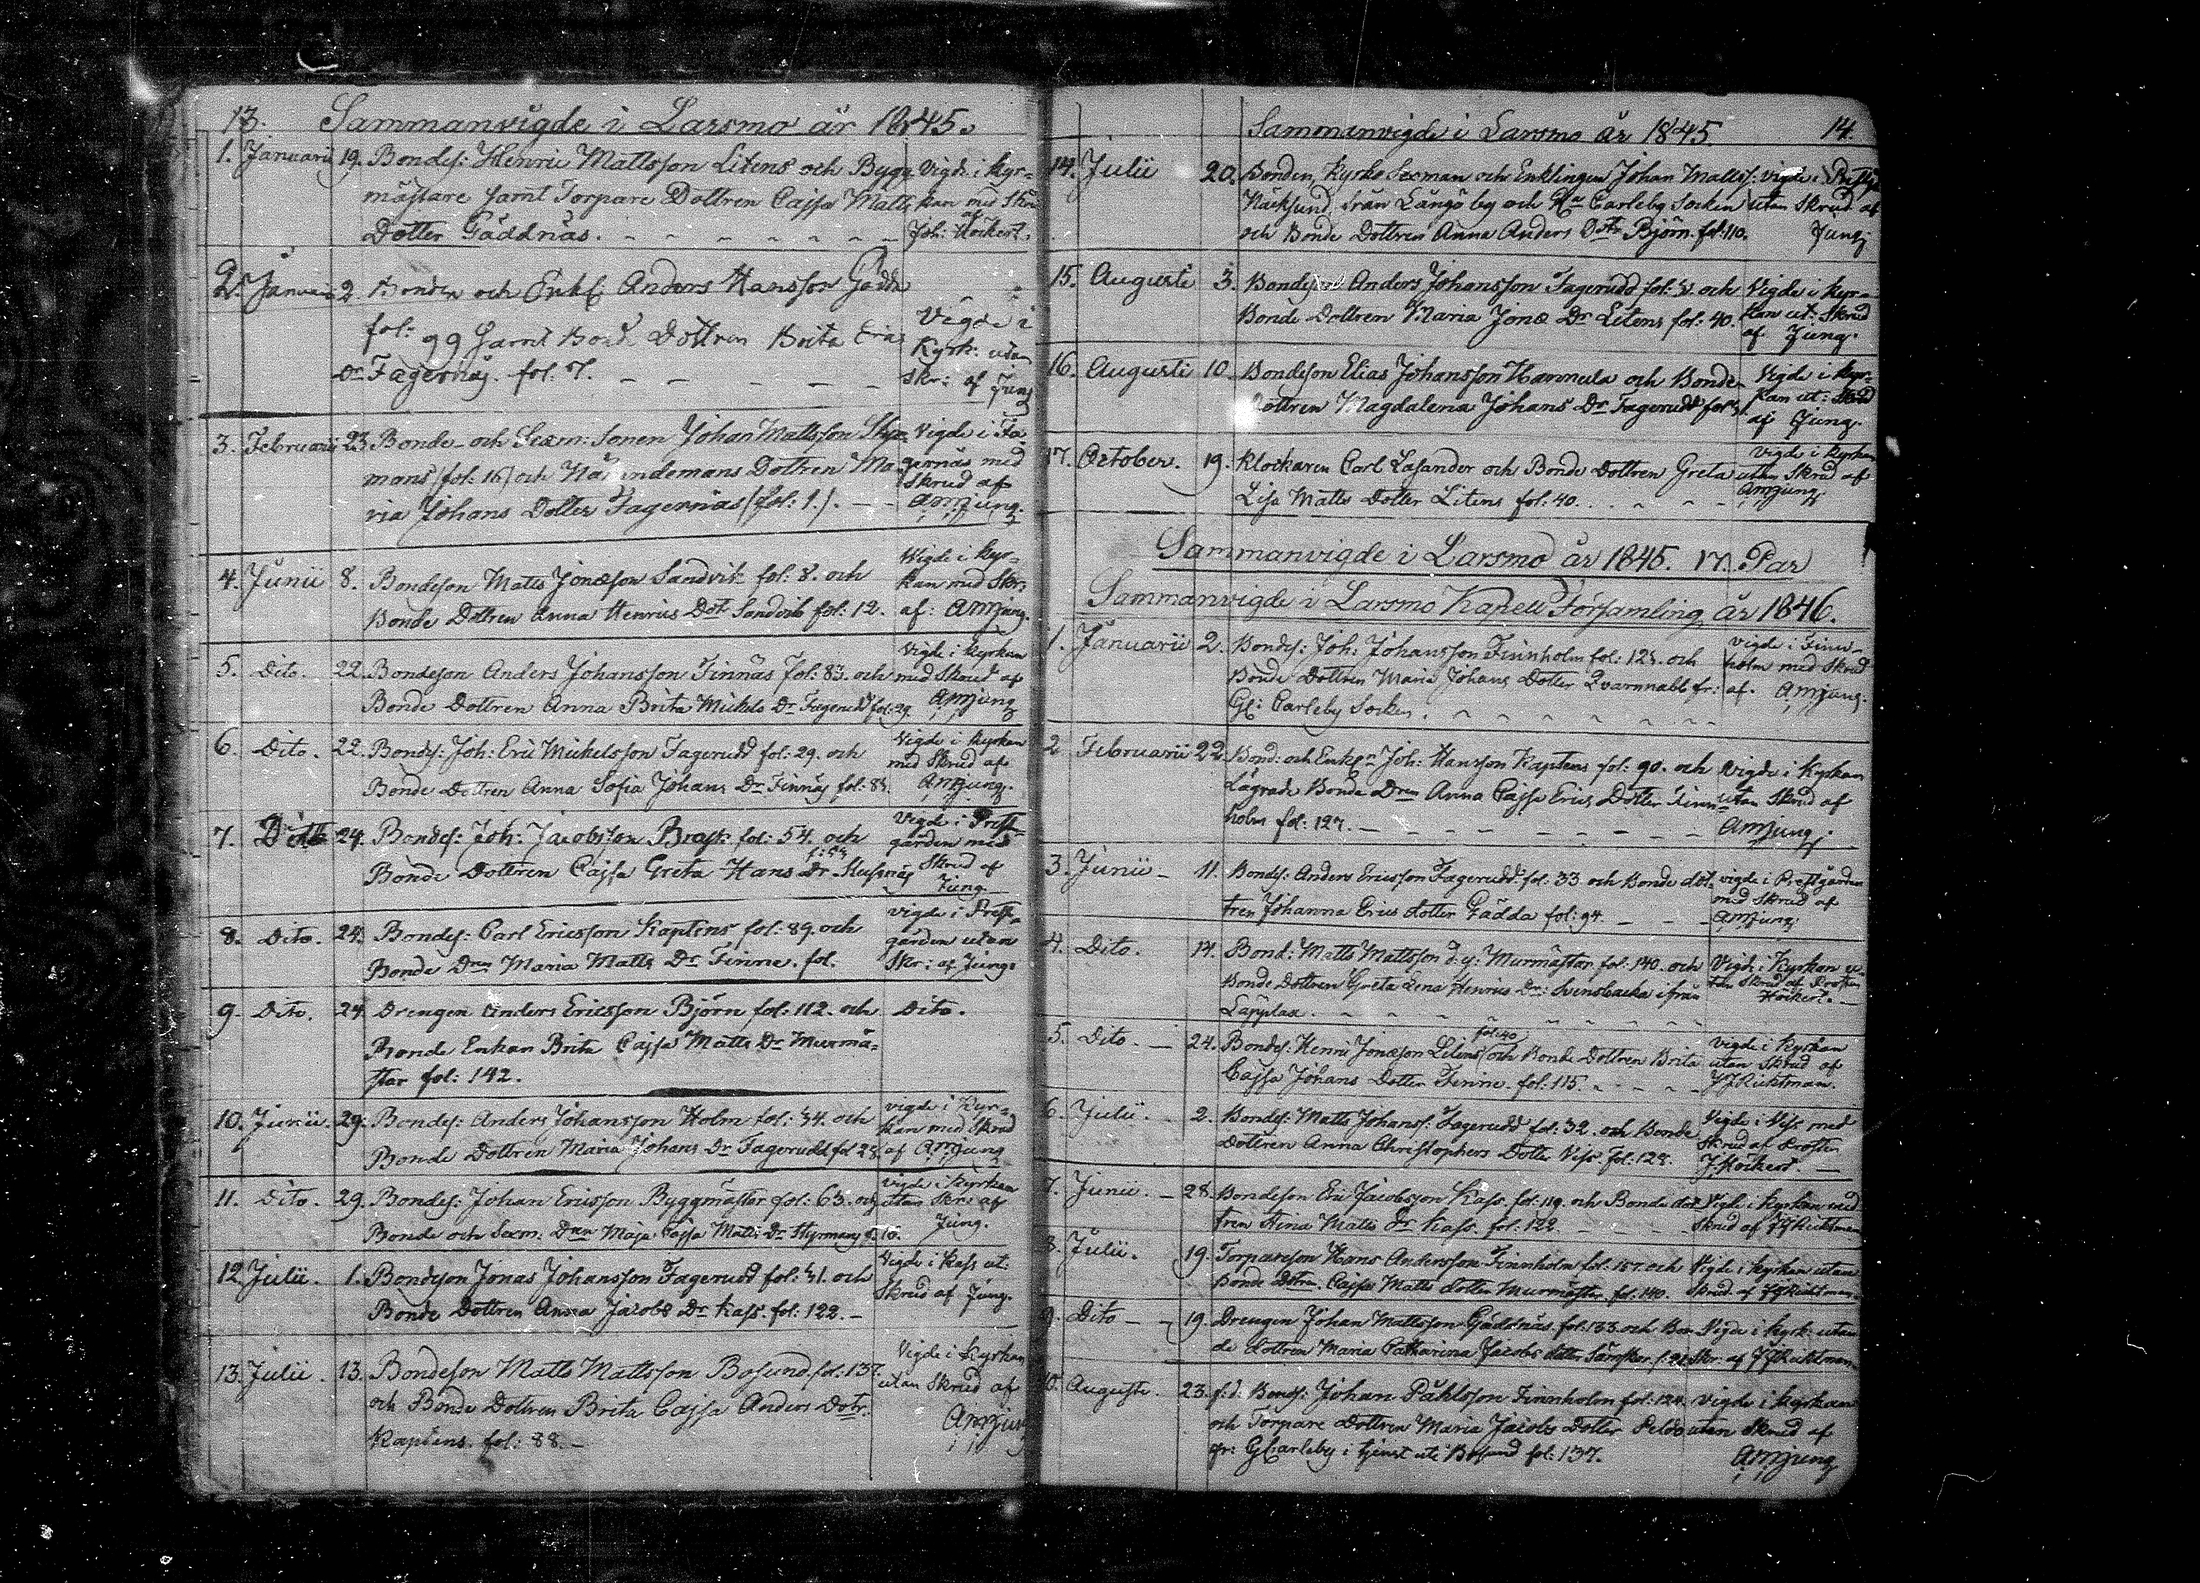 13. Sammanvigde i Larsmo år 1845.
1. Januarii 19. Bondes: Henric Mattsson Litens och Bygg Vigde i Kyr=
mästare samt Torpare Dottren Cajsa Matts kan med Skrud
Dotter Gäddnäs. af Joh: Höckert.
2. Januarii 2. Bonden och Enkl: Anders Hansson Gädda
fol: 99 samt Bond Dottren Brita Erics Vigde i
Dr Fagernäs. fol. 7. Kyrk: utan
skr: af Jung
3. Februarii 23. Bonde och Sexm: Sonen Johan Mattsson Vigde i Fa-
mans (fol: 16) och Nämndemans Dottren Ma- gernäs med
ria Johans Dotter Fagernäs (fol: 1.). Skrud af
AMJung.
4. Junii 8. Bondeson Matts Jonæson Sandvik fol: 8. och Vigde i Kyr-
Bonde Dottren Anna Henrics Dotr Sandvik fol: 12. kan med Skr:
af: AMJung.
5. Dito. 22. Bondeson Anders Johansson Finnäs fol: 83. och Vigde i Kyrkan
Bonde Dottren Anna Brita Mickels Dr Fagerudd fol: 29. med Skrud af
AMJung
6. Dito. 22. Bondes: Joh: Eric Mickelsson Fagerudd fol: 29. och Vigde i Kyrkan
Bonde Dottren Anna Sofia Johans Dr Finnäs fol: 83. med Skrud af
AMJung.
7. Dito 24. Bondes: Joh: Jacobsson Brask fol: 54. och Vigde i Prest=
Bonde Dottren Cajsa Greta Hans Dr gården med
Skrud af
Jung
8. Dito. 24. Bondes: Carl Ericsson Kaptens fol: 89. och vigde i Prest=
Bonde Dren Maria Matts Dr Finne. fol. gården utan
Skr: af Jung.
9. Dito. 24. Drengen Anders Ericsson Björn fol: 112. och Dito.
Bonde Enkan Brita Cajsa Matts Dr Murmä=
star fol: 142.
10. Junii. 29. Bondes: Anders Johansson Holm fol: 34. och vigde i Kyr=
Bonde Dottren Maria Johans Dr Fagerudd fol 28. kan med Skrud
af AMJung
11. Dito. 29. Bondes: Johan Ericsson Byggmästar fol: 63. och vigde i Kyrkan
Bonde och Sexm: Dren Maja Cajsa Matts Dr f. 16. utan Skr: af
Jung.
12. Julii. 1. Bondeson Jonas Johansson Fagerudd fol: 31. och Vigde i Kass ut:
Bonde Dottren Anna Jacobs Dr Kass. fol: 122. Skrud af Jung.
13. Julii. 13. Bondeson Matts Mattsson Bosund. fol. 137. Vigde i Kyrkan
och Bonde Dottren Brita Cajsa Anders Dotr: utan Skrud af
Kaptens. fol: 88. AMJung
Sammanvigde i Larsmo år 1845. 14.
14. Julii 20. Bonden, Kyrko Sexman och Enklingen Johan Matts: vigde i Prestg:
Näcksund från Långö by och Nu Carleby Socken utan Skrud af
och Bonde Dottren Anna Anders Dotr Björn. fol: 110. Jung
15. Augusti 3. Bondeson Anders Johansson Fagerudd fol: och Vigde i Kyr=
Bonde Dottren Maria Jonæ Dr Litens fol: 40. kan ut: Skrud
af Jung.
16. Augusti 10. Bondeson Elias Johansson Hannula och Bonde Vigde i Kyr-
Dottren Magdalena Johans Dr Fagerudd kan ut: Skrud
af Jung.
17. October. 19. Klockaren Carl Lasander och Bonde Dottren Greta Vigde i Kyrkan
Lisa Matts Dotter Litens fol: 40. utan Skrud af
AMJung.
Sammanvigde i Larsmo år 1845. 17. Par
Sammanvigde i Larsmo Kapell Församling år 1846.
1. Januarii 2. Bondes: Joh: Johansson Finnholm fol: 125. och Vigde i Finn-
Bonde Dottren Maria Johans Dotter Qvarnabb fr: holm med Skrud
Gl: Carleby Socken. af. AMJung.
2 Februarii 22. Bond: och Enkl: Joh: Hansson Kaptens fol: 90. och Vigde i Kyrkan
Lägrade Bonde Dren Anna Cajsa Erics Dotter Finn= utan Skrud af
holm fol: 127. AMJung.
3. Junii 11. Bondes: Anders Ericsson Fagerudd fol: 33 och Bonde dot- vigde i Prestgården
tren Johanna Erics dotter Gädda fol: 94. med Skrud af
AMJung.
4. Dito. 14. Bond: Matts Mattsson d. y: Murmästar. fol: 140. och Vigde i Kyrkan u-
Bonde Dottren Greta Lena Henrics Dr: Svensbacka ifrån tan Skrud af Prosten
Lapplax. Höckert.
5. Dito. 24. Bondes: Henric Jonæson Litens fol: 40 och Bonde Dottren Brita Vigde i Kyrkan
Cajsa Johans Dotter Finne. fol: 115. utan Skrud af
JJRicktman.
6. Julii. 2. Bondes: Matts Johanss: Fagerudd fol: 32. och Bonde Vigde i Viss med
Dottren Anna Christophers Dotter Viss. fol: 128. Skrud af Prosten
J. Höckert
7. Junii. 28. Bondeson Eric Jacobsson Kass. fol: 119. och Bonde dot Vigde i Kyrkan med
tren Stina Matts Dr Kass. fol: 122. Skrud af JJRicktman
8. Julii. 19. Torpareson Hans Andersson Finnholm fol: 157. och Vigde i Kyrkan utan
Bonde Dottren. Cajsa Matts dotter Murmästar. fol: 140. Skrud. af JJRicktman
9. Dito 19. Drengen Johan Mattsson Gäddnäs. fol: 133. och Bon- Vigde i Kyrk: utan
de dottren Maria Catharina Jacobs dotter Skr: af JJRicktman
10. Augusti. 23. f: d. Bonds: Johan Påhlsson Finnholm fol: 124. Vigde i Kyrkan
och Torpare Dottren Maria Jacobs Dotter Pelos utan Skrud af
fr: GCarleby i tjenst uti Bosund fol: 137. AMJung